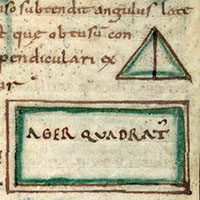 iso subtendit angulus late
t que obtusū con
pendiculari ex
AGER QUADRAT